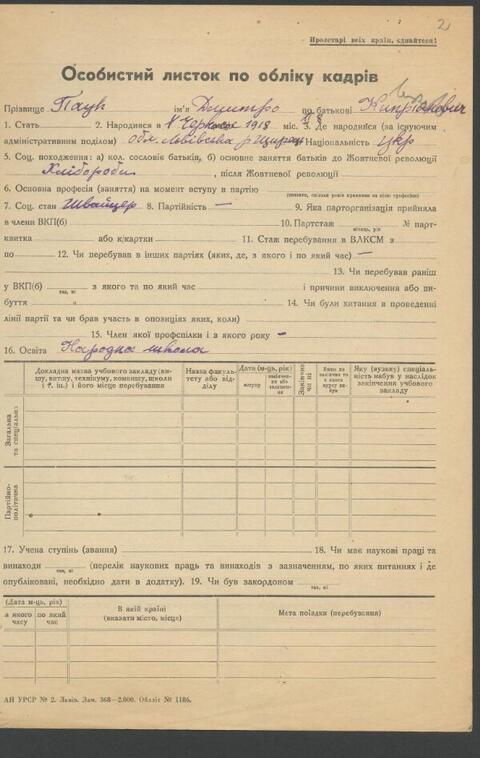 2
Пролетарі всіх країн, єднайтеся!
Особистий листок по обліку кадрів
Прізвище Паук ім'я Дмитро по батькові Кипріянович
1. Стать 2. Народився в 1918 міс. 3. Де народився (за існуючим
адміністративним поділом) обл. Львівська р Національність укр
5. Соц. походження: а) кол. сословіє батьків, б) основне заняття батьків до Жовтневої революції
Хлібороби, після Жовтневої революції
6. Основна професія (заняття) на момент вступу в партію
7. Соц. стан Швайцер 8. Партійність — 9. Яка парторганізація прийняла
в члени ВКП(б) 10. Партстаж № парт-
місяць, рік
квитка або к/картки 11. Стаж перебування в ВЛКСМ з
по 12. Чи перебував в інших партіях (яких, де, з якого і по який час) —
13. Чи перебував раніш
у ВКП(б) з якого та по який час і причини виключення або ви-
так, ні
буття 14. Чи були хитання в проведенні
лінії партії та чи брав участь в опозиціях яких, коли)
15. Член якої профспілки і з якого року —
16. Освіта Народна школа
Докладна назва учбового закладу (ви-
шу, втишу, технікуму, комвишу, школи
і т. ін.) і його місце перебування
Назва факуль-
тету або від-
ділу
Дата (м-ць, рік)
вступу
закінчен-
ня або
залишен-
ня
Закінчив
чи ні
Яку (вузьку) спеціаль-
ність набув у наслідок
закінчення учбового
закладу
Загальна
та спеціальна
Партійно-
політична
17. Учена ступінь (звання) 18. Чи має наукові праці та
винаходи (перелік наукових праць та винаходів з зазначенням, по яких питаннях і де
так, ні
опубліковані, необхідно дати в додатку). 19. Чи був закордоном
так, ні
(Дата м-ць, рік)
з якого
часу
по який
час
В якій країні
(вказати місто, місце)
Мета поїздки (перебування)
АН УРСР № 2. Львів. Зам. 368—2.000. Обліт № 1186.